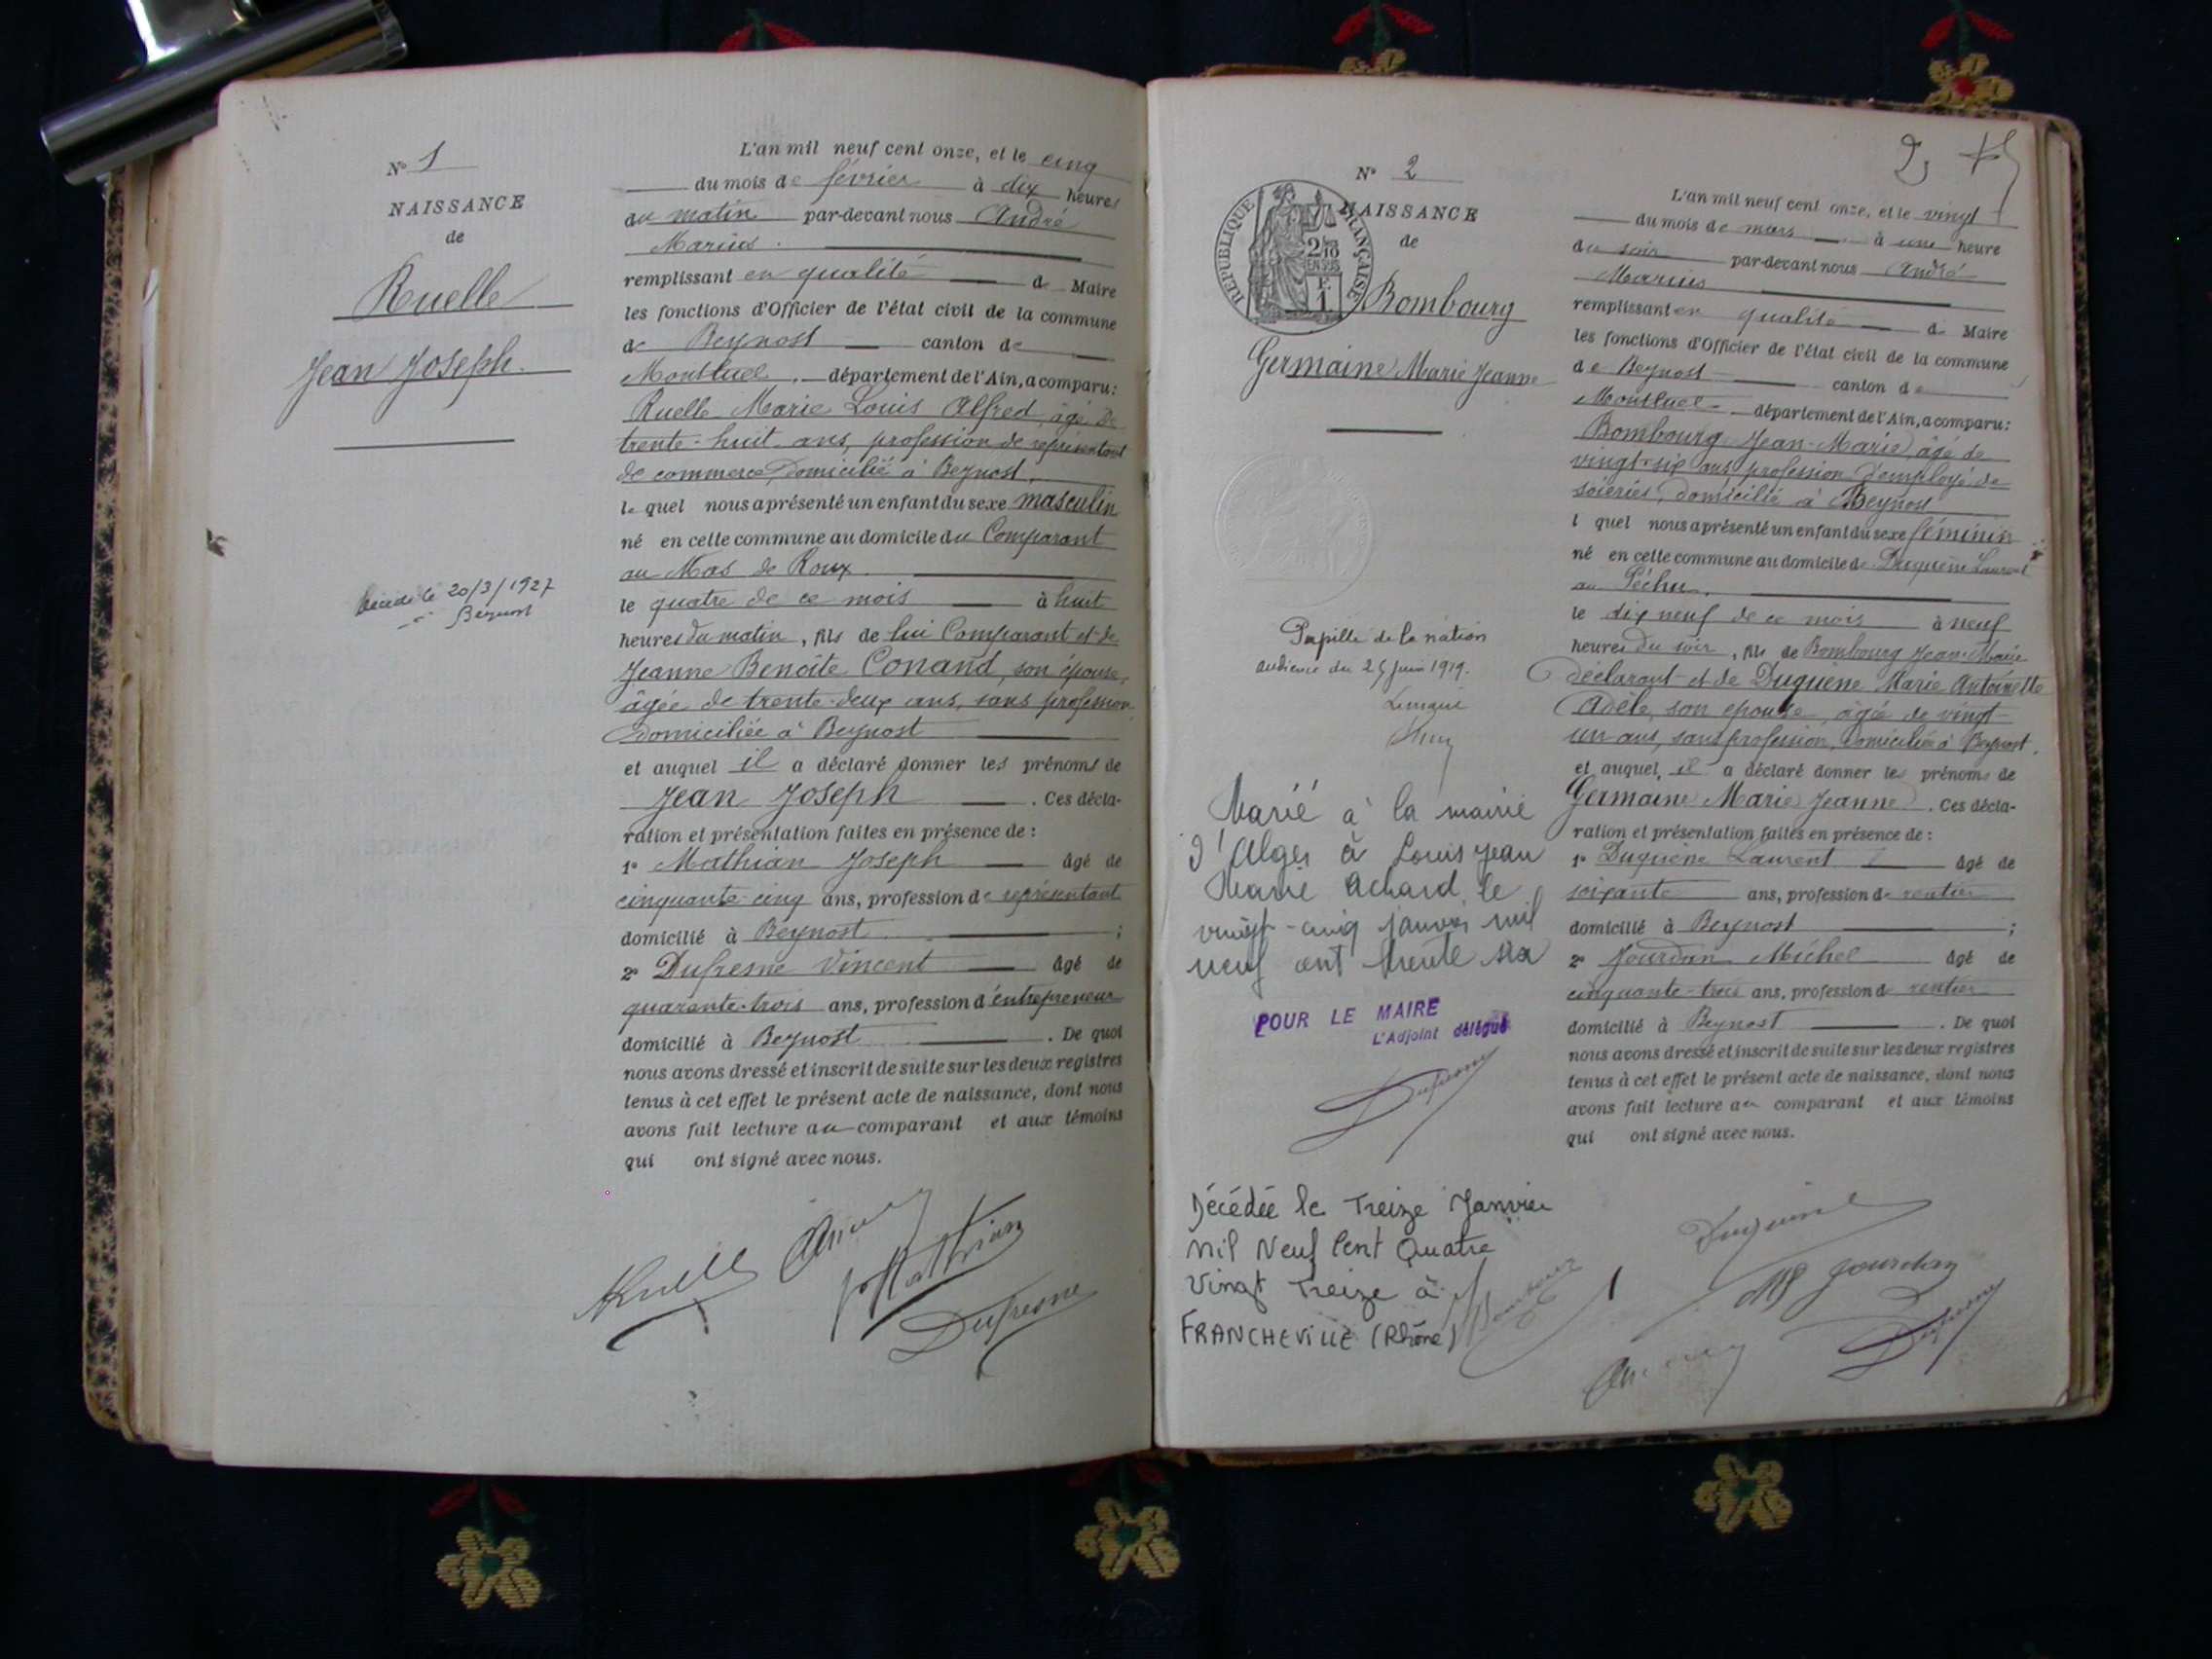 N° 1
NAISSANCE
de
Ruelle
Jean Joseph.
Décédé le 20/3/1927
Beynost
L'an mil neuf cent onze, et le cinq
du mois de février à dix heures
du matin par-devant nous André
Marius.
remplissant en qualité de Maire
les fonctions d'Officier de l'état civil de la commune
de Beynost canton de
Montluel. département de l'Ain, a comparu:
Ruelle Marie Louis Alfred, âgé de
trente-huit ans, profession de représentant
de commerce, domicilié à Beynost,
le quel nous a présenté un enfant du sexe masculin
né en cette commune au domicile du Comparant
au Mas de Roux.
le quatre de ce mois à huit
heures du matin, fils de lui Comparant et de
Jeanne Benoîte Conand, son épouse,
âgée de trente-deux ans, sans profession,
domiciliée à Beynost
et auquel il a déclaré donner les prénoms de
Jean Joseph. Ces décla-
ration et présentation faites en présence de:
1° Mathian Joseph âgé de
cinquante-cinq ans, profession de représentant
domicilié à Beynost;
2° Dufresne Vincent âgé de
quarante-trois ans, profession d'entrepreneur
domicilié à Beynost. De quoi
nous avons dressé et inscrit de suite sur les deux registres
tenus à cet effet le présent acte de naissance, dont nous
avons fait lecture au comparant et aux témoins
qui ont signé avec nous.
Ruelle
J Mathian
Dufresne
2
N° 2
NAISSANCE
de
RÉPUBLIQUE FRANÇAISE
2/10
EN SUS
F.
1
Bombourg
Germaine Marie Jeanne
Pupille de la nation
audience du 25 juin 1919.
Marié à la mairie
d'Alger à Louis Jean
Marie Achard le
vingt-cinq janvier mil
neuf cent trente six
POUR LE MAIRE
L'Adjoint délégué
Dufresne
Décédée le Treize Janvier
Mil Neuf Cent Quatre
Vingt Treize à
FRANCHEVILLE (Rhône)
L'an mil neuf cent onze, et le vingt
du mois de mars à une heure
du soir par-devant nous André
Marius
remplissant en qualité de Maire
les fonctions d'Officier de l'état civil de la commune
de Beynost canton de
Montluel département de l'Ain, a comparu:
Bombourg Jean-Marie, âgé de
vingt-six ans, profession d'employé de
soieries, domicilié à Beynost
l quel nous a présenté un enfant du sexe féminin
né en cette commune au domicile de Duquène Laurent
au Péchu.
le dix neuf de ce mois à neuf
heures du soir, fils de Bombourg Jean Marie
déclarant et de Duquène Marie Antoinette
Adèle, son épouse, âgée de vingt-
un ans, sans profession, domiciliée à Beynost.
et auquel il a déclaré donner les prénoms de
Germaine Marie Jeanne. Ces décla-
ration et présentation faites en présence de:
1° Duquène Laurent âgé de
soixante ans, profession de rentier
domicilié à Beynost;
2° Jourdan Michel âgé de
cinquante-trois ans, profession de rentier
domicilié à Beynost. De quoi
nous avons dressé et inscrit de suite sur les deux registres
tenus à cet effet le présent acte de naissance, dont nous
avons fait lecture au comparant et aux témoins
qui ont signé avec nous.
Duquène
Jourdan
Bombourg
Dufresne